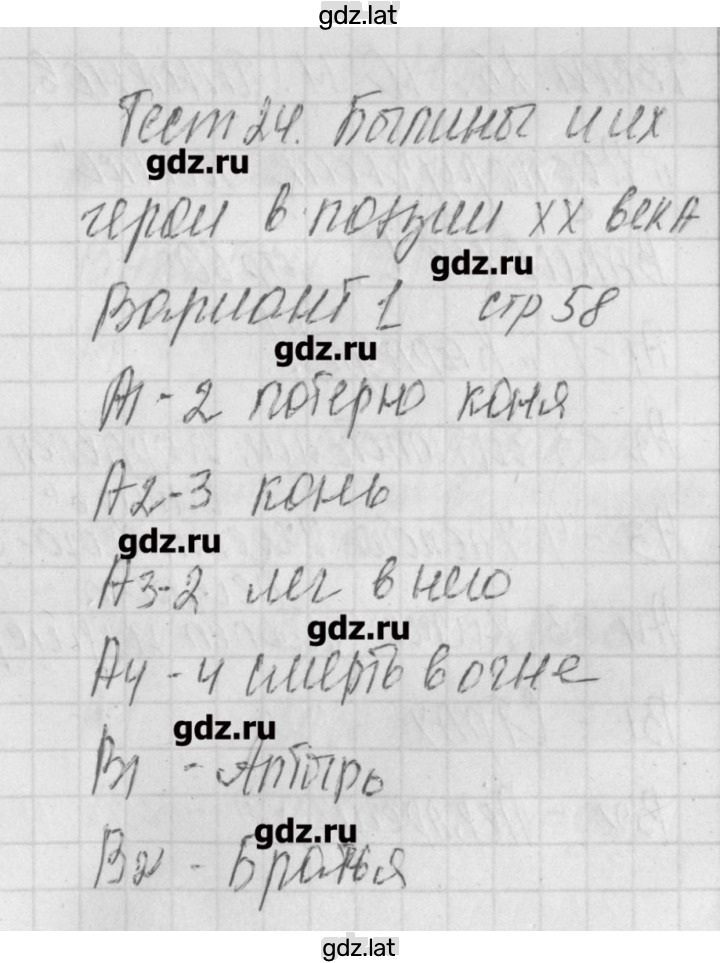 gdz.lat
Тест 24. Былины и их
gdz.ru
герои в поэзии XX века
gdz.ru
Вариант 1 стр 58
gdz.ru
А1-2 потерю коня
А2-3 конь
gdz.ru
А3-2 лег в него
gdz.ru
А4-4 смерть в огне
gdz.ru
В1 -
gdz.ru
В2 - Братья
gdz.lat